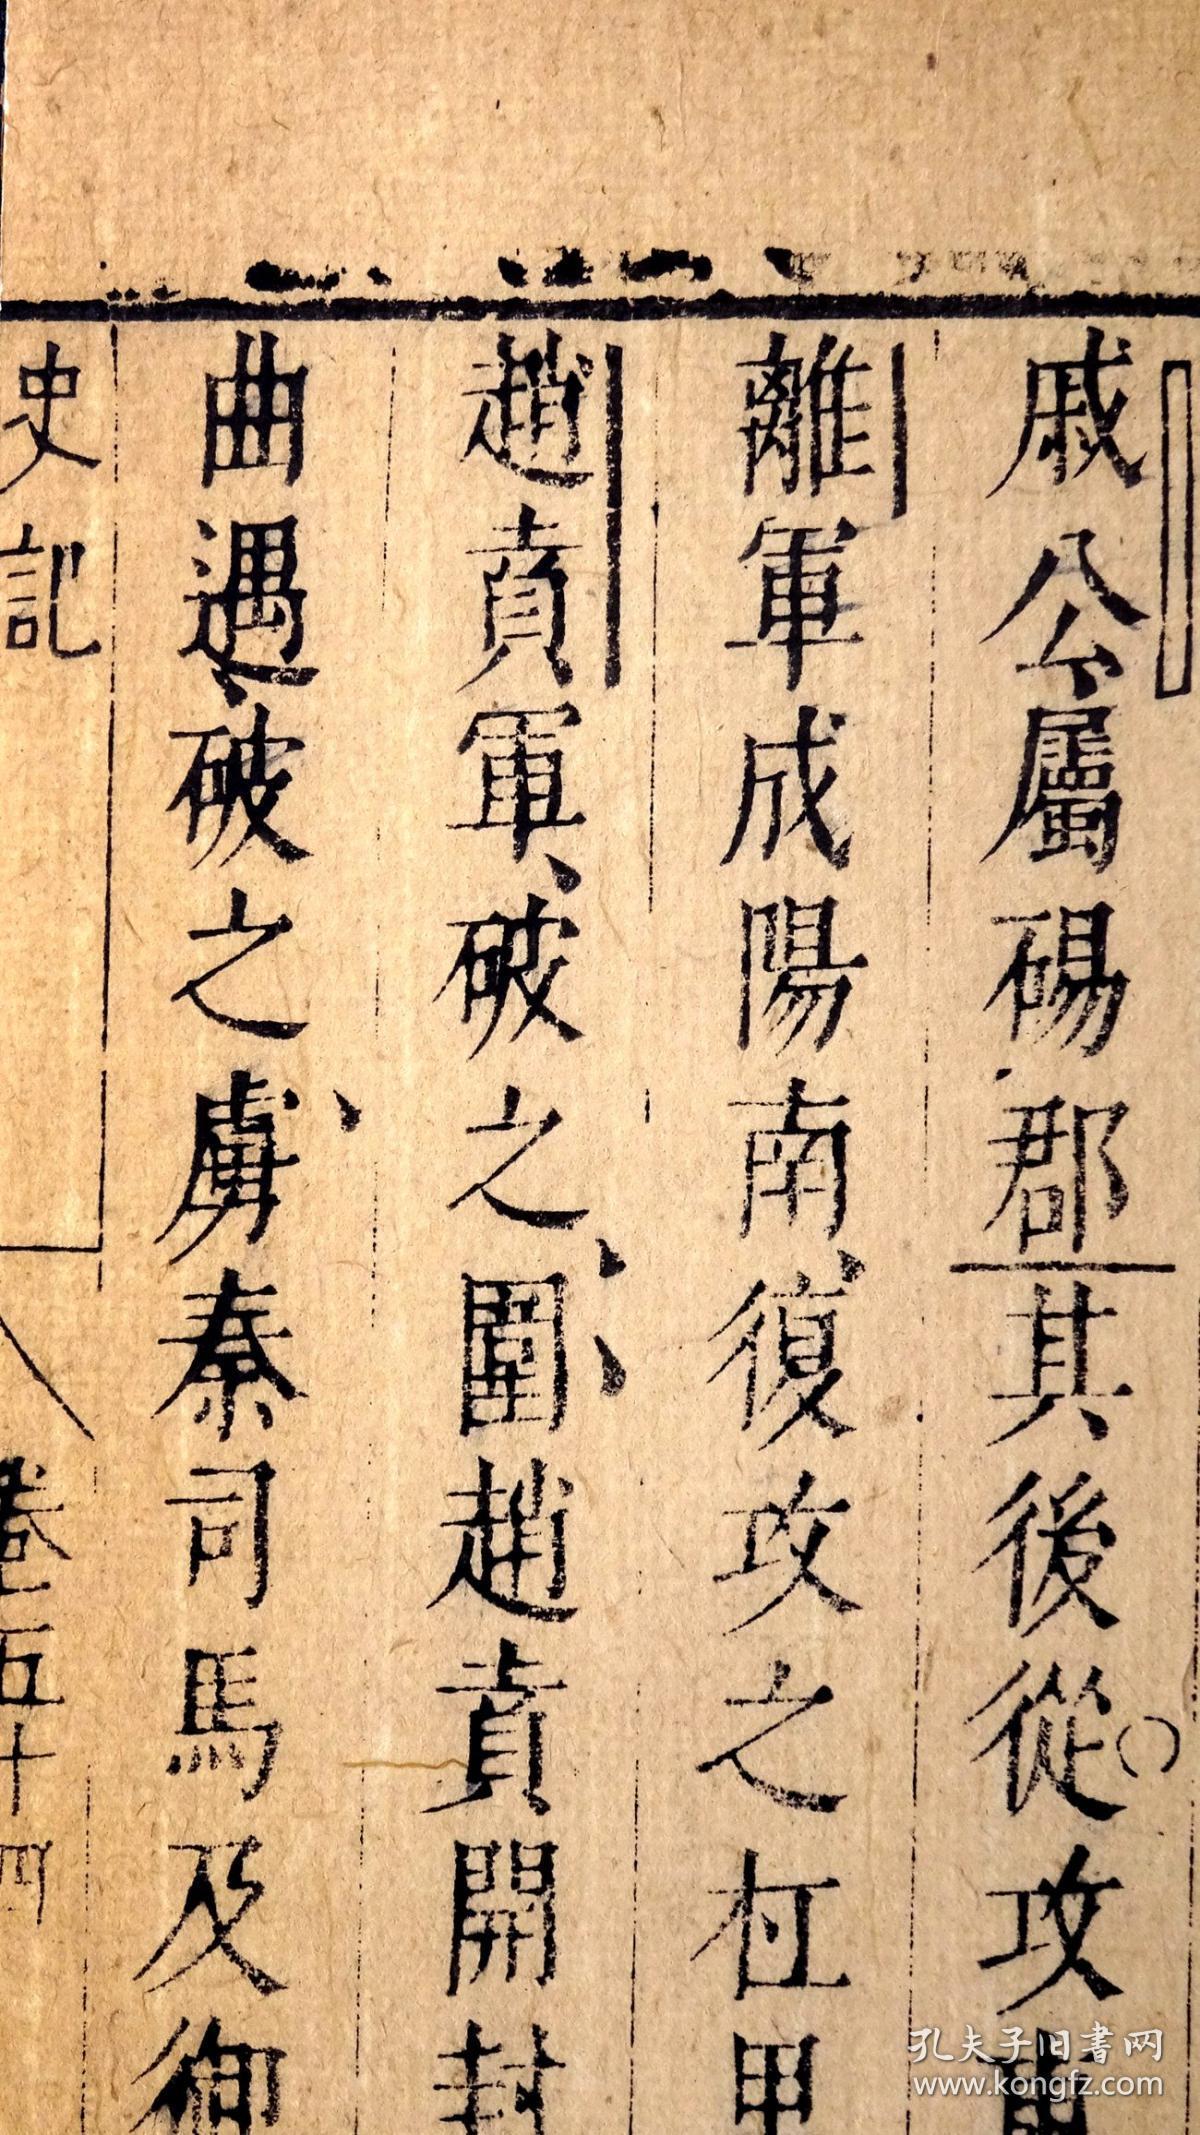 戚公屬碭郡其後從攻東
離軍成陽南復攻之杠里
趙賁軍破之圍趙賁開封
曲遇破之虜秦司馬及御
史記 卷五十四
孔夫子旧書网
www.kongfz.com